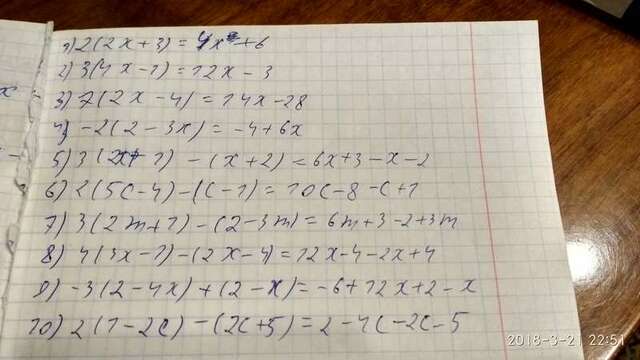 1) 2(2x+3) = 4x+6
2) 3(4x-1) = 12x-3
3) 7(2x-4) = 14x-28
4) -2(2-3x) = -4+6x
5) 3(2x+1) - (x+2) = 6x+3-x-2
6) 2(5c-4) - (c-1) = 10c-8-c+1
7) 3(2m+1) - (2-3m) = 6m+3-2+3m
8) 4(3x-1) - (2x-4) = 12x-4-2x+4
9) -3(2-4x) + (2-x) = -6+12x+2-x
10) 2(1-2c) - (2c+5) = 2-4c-2c-5
2018-3-21 22:51